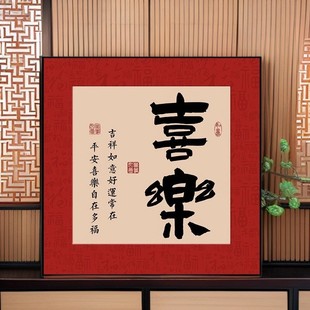 喜樂
吉祥如意好運常在
平安喜樂自在多福